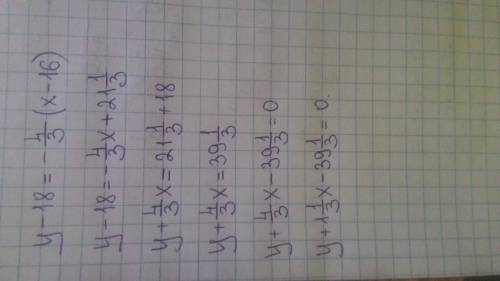 y-18=-4/3(x-16)
y-18=-4/3x+21 1/3
y+4/3x=21 1/3+18
y+4/3x=39 1/3
y+4/3x-39 1/3=0
y+1 1/3x-39 1/3=0.